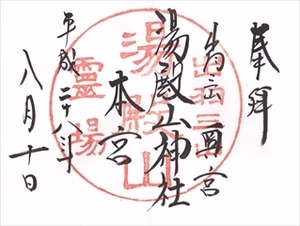 奉拝
出羽三山 奥宮
湯殿山神社
本宮
平成二十八年
八月十日
出羽三山
湯殿山
霊場